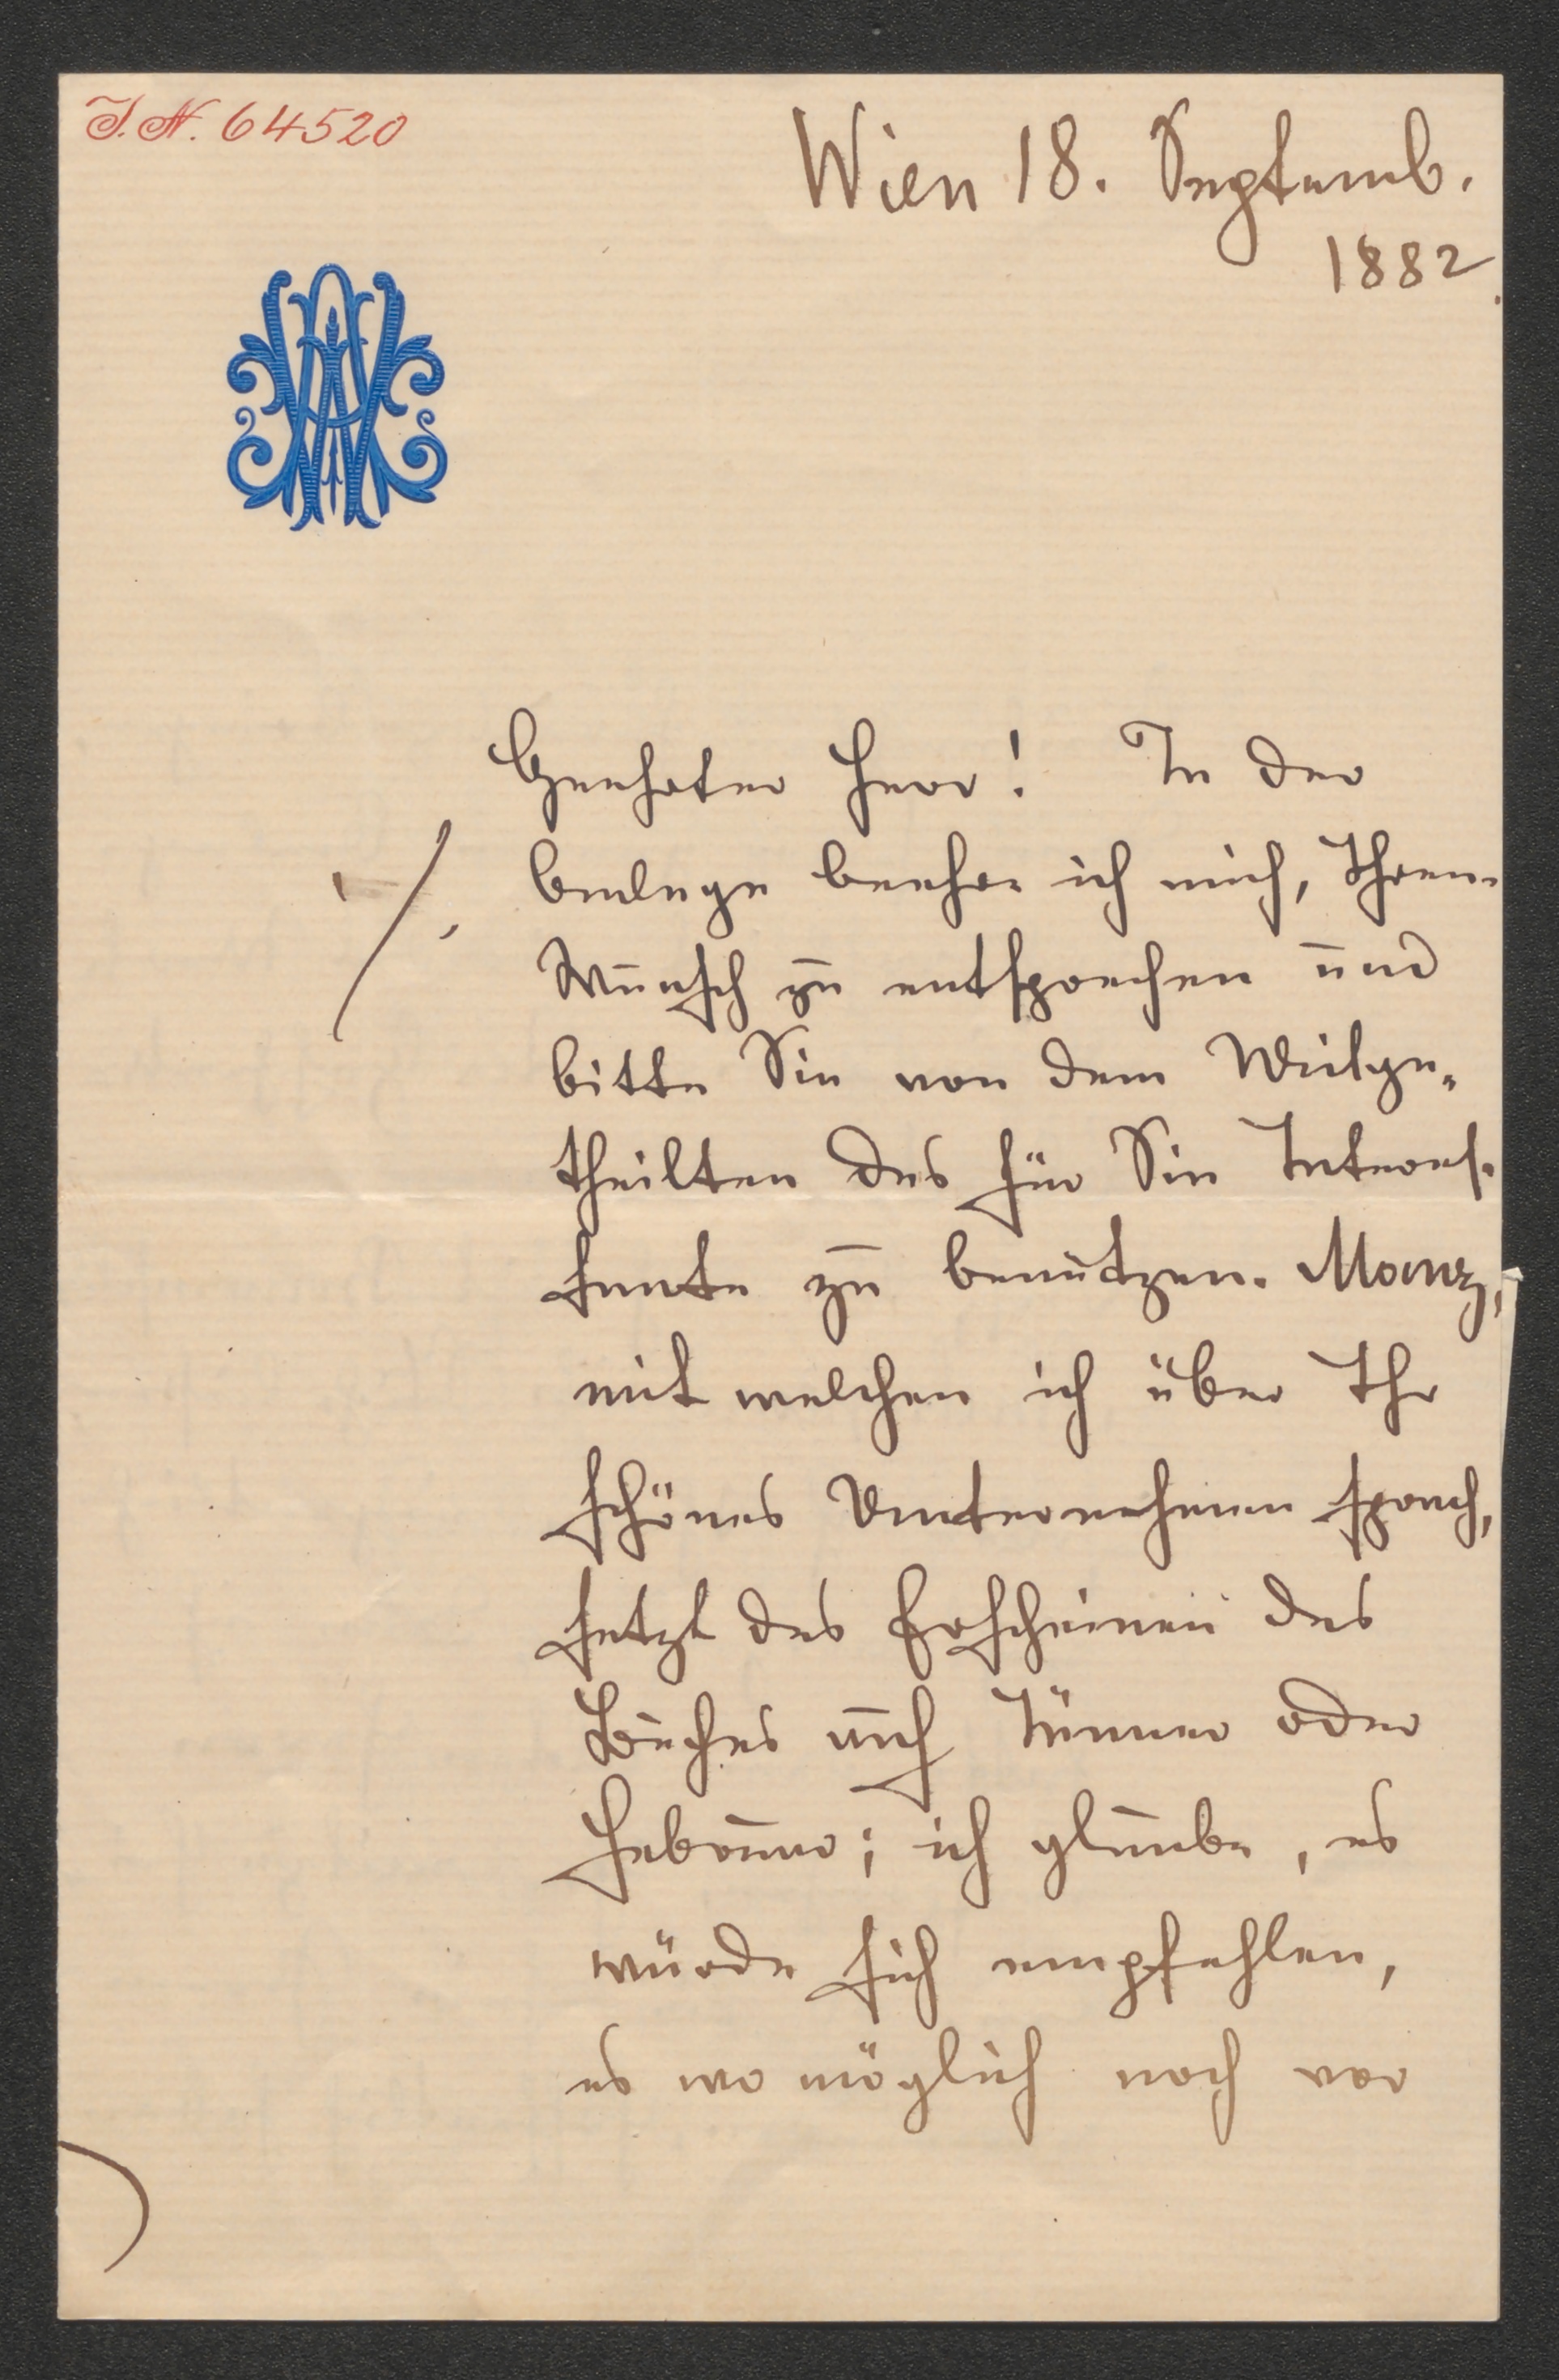 I. N. 64520
Wien 18. Septemb.
1882.
Geehrter Herr! In der
Beilage beehre ich mich, Ihren
Wunsch zu entsprechen und
bitte Sie von dem Mitge-
theilten das für Sie Interes-
sante zu benützen. Manz,
mit welchen ich über Ihr
schönes Unternehmen sprach,
setzt das Erscheinen des
Buches auf Jänner oder
Februar; ich glaube, es
würde sich empfehlen,
es wo möglich noch vor